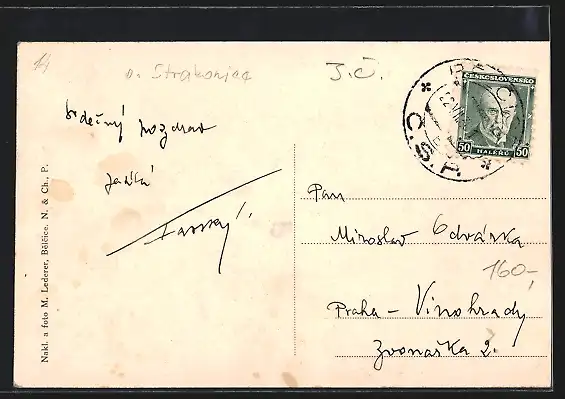 14
o. Strakonice
J.Č.
ČESKOSLOVENSKO
50 HALÉŘŮ 50
Č.S.P.
Srdečný pozdrav
Pan
Miroslav Odvárka
160,-
Praha - Vinohrady
Zvonařka 2.
Nakl. a foto M. Lederer, Bělčice. N. & Ch., P.